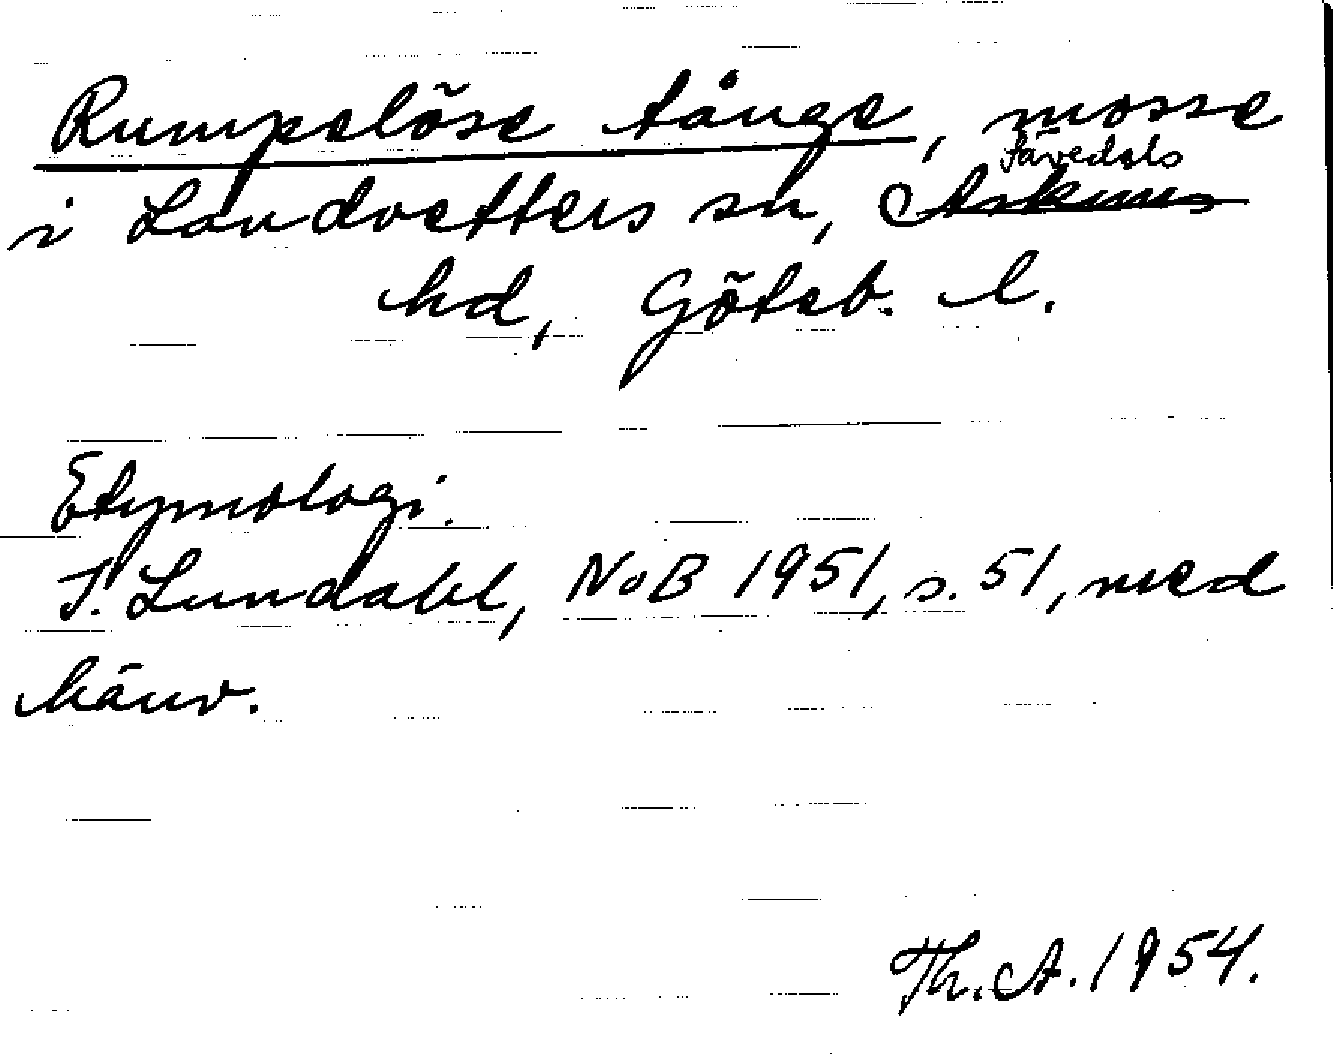 Rumpelöse tånge, mosse
i Landvetters sn, Askims Sävedals
hd, Göteb. l.
Etymologi.
I. Lundahl, NoB 1951, s. 51, med
hänv.
Th. A. 1954.